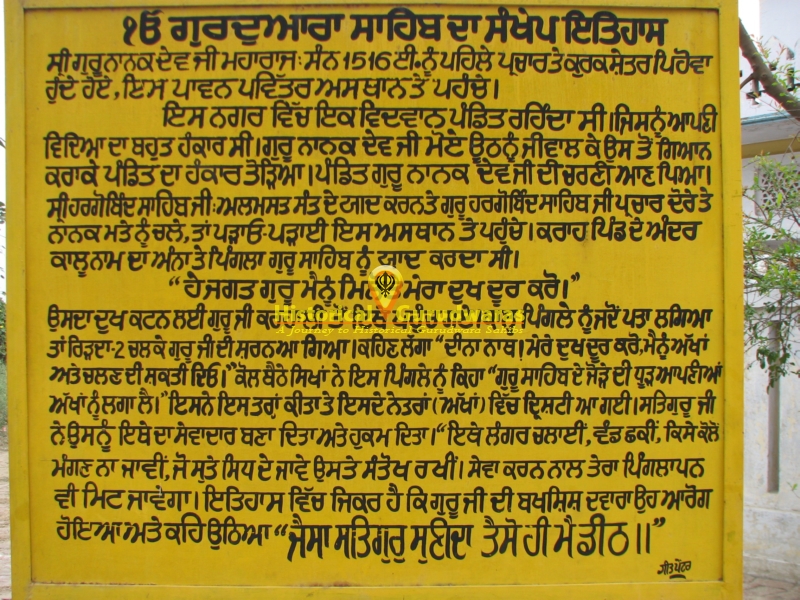 ੴ ਗੁਰਦੁਆਰਾ ਸਾਹਿਬ ਦਾ ਸੰਖੇਪ ਇਤਿਹਾਸ
ਸ੍ਰੀ ਗੁਰੂ ਨਾਨਕ ਦੇਵ ਜੀ ਮਹਾਰਾਜ: ਸੰਨ 1516 ਈ. ਨੂੰ ਪਹਿਲੇ ਪ੍ਰਚਾਰ ਤੇ ਕੁਰਕਸ਼ੇਤਰ ਪਿਹੋਵਾ
ਹੁੰਦੇ ਹੋਏ, ਇਸ ਪਾਵਨ ਪਵਿੱਤਰ ਅਸਥਾਨ ਤੇ ਪਹੁੰਚੇ।
ਇਸ ਨਗਰ ਵਿੱਚ ਇਕ ਵਿਦਵਾਨ ਪੰਡਿਤ ਰਹਿੰਦਾ ਸੀ। ਜਿਸਨੂੰ ਆਪਣੀ
ਵਿਦਿਆ ਦਾ ਬਹੁਤ ਹੰਕਾਰ ਸੀ। ਗੁਰੂ ਨਾਨਕ ਦੇਵ ਜੀ ਮੋਏ ਊਠ ਨੂੰ ਜੀਵਾਲ ਕੇ ਉਸ ਤੋਂ ਗਿਆਨ
ਕਰਾਕੇ ਪੰਡਿਤ ਦਾ ਹੰਕਾਰ ਤੋੜਿਆ। ਪੰਡਿਤ ਗੁਰੂ ਨਾਨਕ ਦੇਵ ਜੀ ਦੀ ਚਰਣੀ ਆਣ ਪਿਆ।
ਸ੍ਰੀ ਹਰਗੋਬਿੰਦ ਸਾਹਿਬ ਜੀ: ਅਲਮਸਤ ਸੰਤ ਦੇ ਯਾਦ ਕਰਨ ਤੇ ਗੁਰੂ ਹਰਗੋਬਿੰਦ ਸਾਹਿਬ ਜੀ ਪ੍ਰਚਾਰ ਦੌਰੇ ਤੇ
ਨਾਨਕ ਮਤੇ ਨੂੰ ਚਲੇ, ਤਾਂ ਪੜਾਓ-ਪੜਾਈ ਇਸ ਅਸਥਾਨ ਤੇ ਪਹੁੰਚੇ। ਕਰਾਹ ਪਿੰਡ ਦੇ ਅੰਦਰ
ਕਾਲੂ ਨਾਮ ਦਾ ਅੰਨਾ ਤੇ ਪਿੰਗਲਾ ਗੁਰੂ ਸਾਹਿਬ ਨੂੰ ਯਾਦ ਕਰਦਾ ਸੀ।
“ਹੇ ਜਗਤ ਗੁਰੂ ਮੈਨੂੰ ਮੇਰਾ ਦੁਖ ਦੂਰ ਕਰੋ।”
ਉਸਦਾ ਦੁਖ ਕਟਨ ਲਈ ਗੁਰੂ ਜੀ ਪਿੰਗਲੇ ਨੂੰ ਜਦੋਂ ਪਤਾ ਲਗਿਆ
Historical Gurudwaras
A Journey to Historical Gurudwara Sahibs
ਤਾਂ ਰਿੜਦਾ-2 ਚਲ ਕੇ ਗੁਰੂ ਜੀ ਦੀ ਸ਼ਰਨ ਆ ਗਿਆ। ਕਹਿਣ ਲੱਗਾ “ਦੀਨਾ ਨਾਥ। ਮੇਰੇ ਦੁਖ ਦੂਰ ਕਰੋ, ਮੈਨੂੰ ਅੱਖਾਂ
ਅਤੇ ਚਲਣ ਦੀ ਸ਼ਕਤੀ ਦਿਓ।” ਕੋਲ ਬੈਠੇ ਸਿਖਾਂ ਨੇ ਇਸ ਪਿੰਗਲੇ ਨੂੰ ਕਿਹਾ “ਗੁਰੂ ਸਾਹਿਬ ਦੇ ਜੋੜੇ ਦੀ ਧੂੜ ਆਪਣੀਆਂ
ਅੱਖਾਂ ਨੂੰ ਲਗਾ ਲੈ।” ਇਸਨੇ ਇਸ ਤਰ੍ਹਾਂ ਕੀਤਾ ਤੇ ਇਸਦੇ ਨੇਤਰਾਂ (ਅੱਖਾਂ) ਵਿੱਚ ਦ੍ਰਿਸ਼ਟੀ ਆ ਗਈ। ਸਤਿਗੁਰੂ ਜੀ
ਨੇ ਉਸਨੂੰ ਇਥੇ ਦਾ ਸੇਵਾਦਾਰ ਬਣਾ ਦਿਤਾ ਅਤੇ ਹੁਕਮ ਦਿਤਾ। “ਇਥੇ ਲੰਗਰ ਚਲਾਈਂ, ਵੰਡ ਛਕੀਂ, ਕਿਸੇ ਕੋਲੋਂ
ਮੰਗਣ ਨਾ ਜਾਵੀਂ, ਜੋ ਸੁਤੇ ਸਿਧ ਦੇ ਜਾਵੇ ਉਸਤੇ ਸੰਤੋਖ ਰਖੀਂ। ਸੇਵਾ ਕਰਨ ਨਾਲ ਤੇਰਾ ਪਿੰਗਲਾਪਨ
ਵੀ ਮਿਟ ਜਾਵੇਗਾ। ਇਤਿਹਾਸ ਵਿੱਚ ਜਿਕਰ ਹੈ ਕਿ ਗੁਰੂ ਜੀ ਦੀ ਬਖਸ਼ਿਸ਼ ਦਵਾਰਾ ਉਹ ਆਰੋਗ
ਹੋਇਆ ਅਤੇ ਕਹਿ ਉਠਿਆ “ਜੈਸਾ ਸਤਿਗੁਰੁ ਸੁਣੀਦਾ ਤੈਸੋ ਹੀ ਮੈ ਡੀਠ॥”
ਪੇਂਟਰ